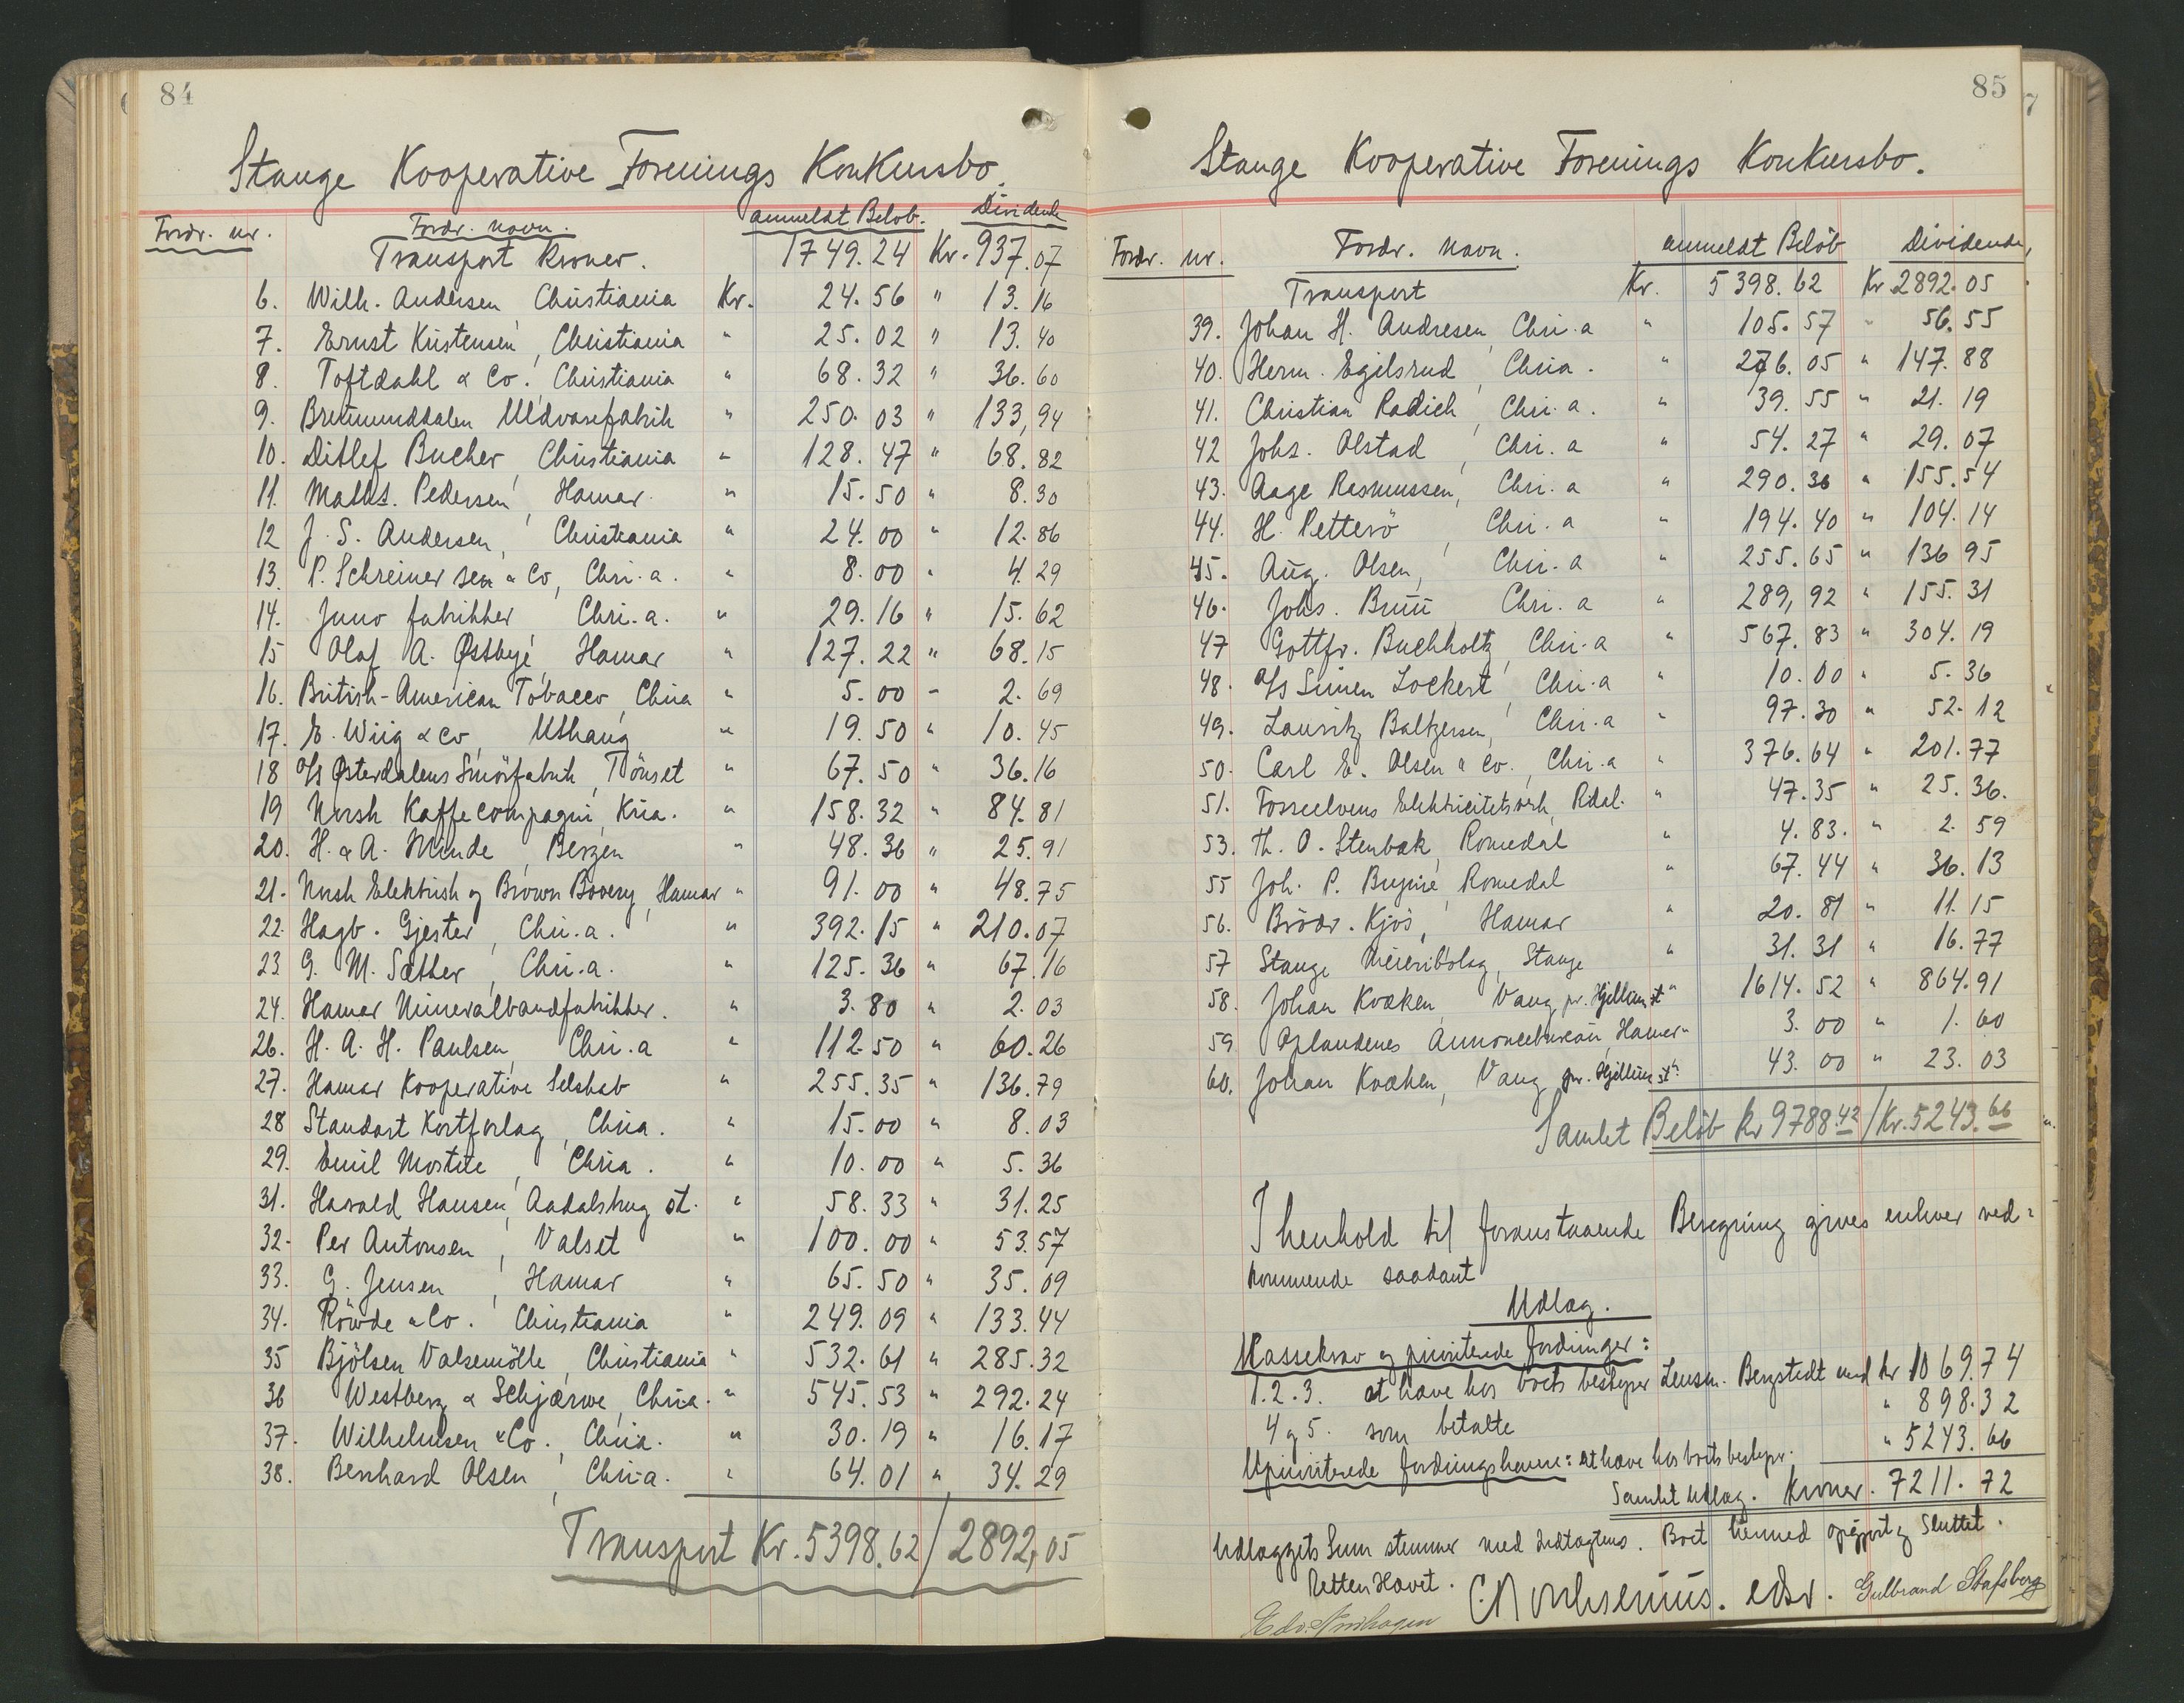 84
Stange Kooperative Forenings Konkursbo.
Fordr. nr. Fordr. navn. anmeldt Beløb. Dividende
Transport Kroner. 1749.24 Kr. 937.07
6. Wilh. Andersen Christiania Kr. 24.56 " 13.16
7. Ernst Kristensen, Christiania " 25.02 " 13.40
8. Toftdahl & Co. Christiania " 68.32 " 36.60
9. Bretunddalen Uldvarefabrik " 250.03 " 133,94
10. Ditlef Bucher, Christiania " 128.47 " 68.82
11. Maths. Pedersen, Hamar " 15.50 " 8.30
12 J. S. Andersen, Christiania " 24.00 " 12.86
13. P. Schreiner sen & Co, Chri.a. " 8.00 " 4.29
14. Juno fabrikker Chri.a. " 29.16 " 15.62
15 Olaf A. Østbye, Hamar " 127.22 " 68.15
16. British-American Tobacco, Chria " 5.00 – 2.69
17. E. Wiig & Co, Uthaug " 19.50 " 10.45
18 A/S Østerdalens Smörfabrik, Tönset " 67.50 " 36.16
19 Norsk Kaffecompagni, Kria. " 158.32 " 84.81
20. H. & A. Minde, Bergen " 48.36 " 25.91
21. Norsk Elektrisk og Brown Bovery, Hamar " 91.00 " 48.75
22. Hagb. Gjester, Chri.a. " 392.15 " 210.07
23 G. M. Sæther, Chri.a. " 125.36 " 67.16
24. Hamar Mineralvandfabrikker. " 3.80 " 2.03
26. H. A. H. Paulsen, Chri.a " 112.50 " 60.26
27. Hamar Kooperative Selskab " 255.35 " 136.79
28 Standart Kortforlag, Chria. " 15.00 " 8.03
29. Emil Mostue, Chria. " 10.00 " 5.36
31. Harald Hansen, Aadalsbrug st. " 58.33 " 31.25
32. Per Antonsen, Valset " 100.00 " 53.57
33. G. Jensen, Hamar " 65.50 " 35.09
34. Röwde & Co. Christiania " 249.09 " 133.44
35 Bjölsen Valsemölle, Christiania " 532.61 " 285.32
36 Westberg & Schjærve, Chria. " 545.53 " 292.24
37. Wilhelmsen & Co., Chria. " 30.19 " 16.17
38. Bernhard Olsen, Chri-a. " 64.01 " 34.29
Transport Kr. 5398.62/2892,05
85
Stange Kooperative Forenings Konkursbo.
Fordr. nr. Fordr. navn. anmeldt Beløb Dividende,
Transport Kr. 5398.62 Kr. 2892.05
39. Johan H. Andresen, Chri.a " 105.57 " 56.55
40. Herm. Egilsrud, Chria. " 276.05 " 147.88
41. Christian Radich, Chri.a. " 39.55 " 21.19
42 Johs. Olstad, Chri.a " 54.27 " 29.07
43. Aage Rasmussen, Chri.a " 290.36 " 155.54
44. H. Petterö, Chri.a " 194.40 " 104.14
45. Aug. Olsen, Chri.a " 255.65 " 136 95
46. Johs. Bruu Chri.a " 289,92 " 155.31
47 Gottfr. Buchholtz, Chri.a " 567.83 " 304.19
48. A/S Simen Lockert, Chri.a " 10.00 " 5.36
49. Lauritz Baltzersen, Chri.a " 97.30 " 52.12
50. Carl E. Olsen & Co., Chri.a " 376.64 " 201.77
51. Fosselvens Elektricitetsverk, Rdal. " 47.35 " 25.36.
53. Th. O. Stenbæk, Romedal " 4.83. " 2.59
55 Joh. P. Bryni, Romedal " 67.44 " 36.13
56. Brödr. Kjös, Hamar " 20.81 " 11.15
57 Stange Meieribolag, Stange " 31.31 " 16.77
58. Johan Kvæken, Vang pr. Hjellum st " 1614.52 " 864.91
59 Oplandenes Annoncebureau, Hamar " 3.00 " 1.60
60. Johan Kvæken, Vang pr. Hjellum st. " 43.00 " 23.03
Samlet Beløb kr 9788.42/Kr. 5243.66
I henhold til foranstaaende Beregning gives enhver ved=
kommende saadant
Udlæg.
Massekrav og prioriterede fordringer:
1.2.3. at have hos boets bestyrer Lensm. Bergstedt med kr 1069.74
4 og 5. som betalte " 898.32
Uprioriterede fordringshavere: at have hos boets bestyrer. " 5243.66
Samlet udlæg. Kroner. 7211.72
Udlæggets Sum stemmer med Indtægtens. Boet hermed opgjort og sluttet.
Retten Hævet.
Gulbrand Stafsberg